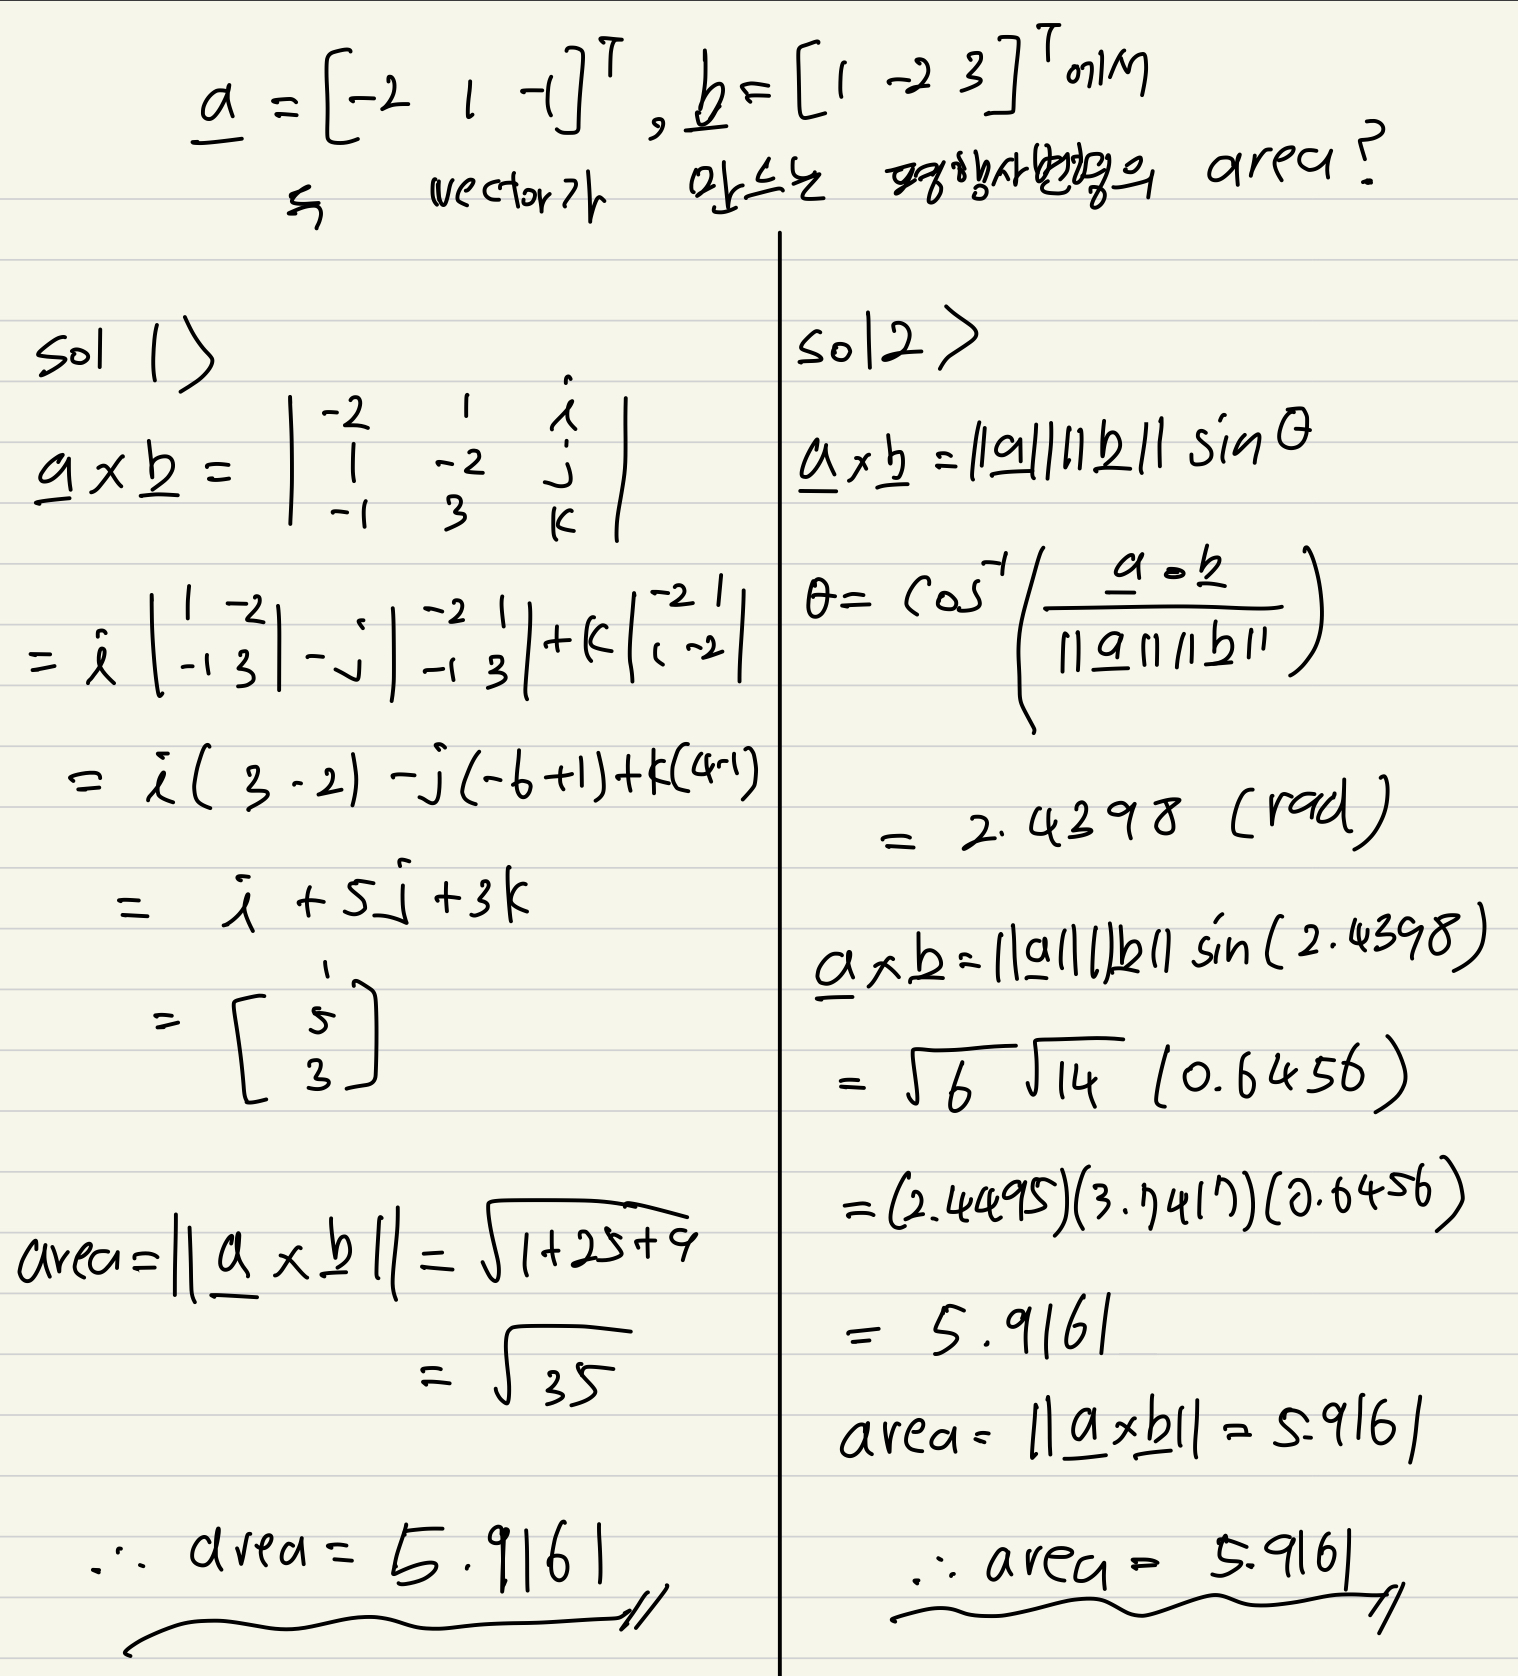 a = [-2 1 -1]ᵀ, b = [1 -2 3]ᵀ에서
두 vector가 만드는 평행사변형의 area?
sol 1>
a × b = | -2 1 i |
| 1 -2 j |
| -1 3 k |
= i | 1 -2 | - j | -2 1 | + k | -2 1 |
| -1 3 | | -1 3 | | 1 -2 |
= i(3-2) - j(-6+1) + k(4-1)
= i + 5j + 3k
= [ 1
5
3 ]
area = ||a × b|| = √1+25+9
= √35
∴ area = 5.9161
sol 2>
a × b = ||a|| ||b|| sin θ
θ = cos⁻¹ ( a • b
/ ||a|| ||b|| )
= 2.4398 (rad)
a × b = ||a|| ||b|| sin(2.4398)
= √6 √14 (0.6456)
= (2.4495)(3.7417)(0.6456)
= 5.9161
area = ||a × b|| = 5.9161
∴ area = 5.9161